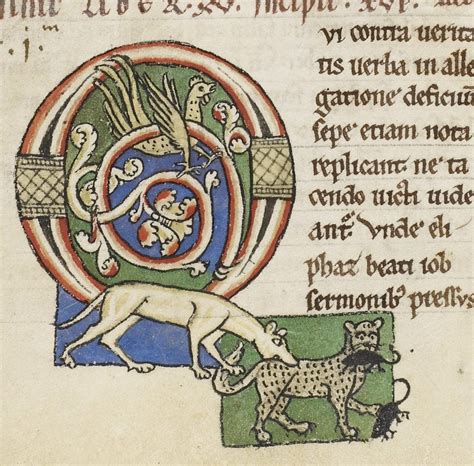 incipit . xvi.
vi contra uerita
tis uerba in alle
gatione deficiun
sepe etiam nota
replicant. ne ta
cendo uicti uide
antᷣ. Vnde eli
phaz beati iob
sermonibꝰ pressus